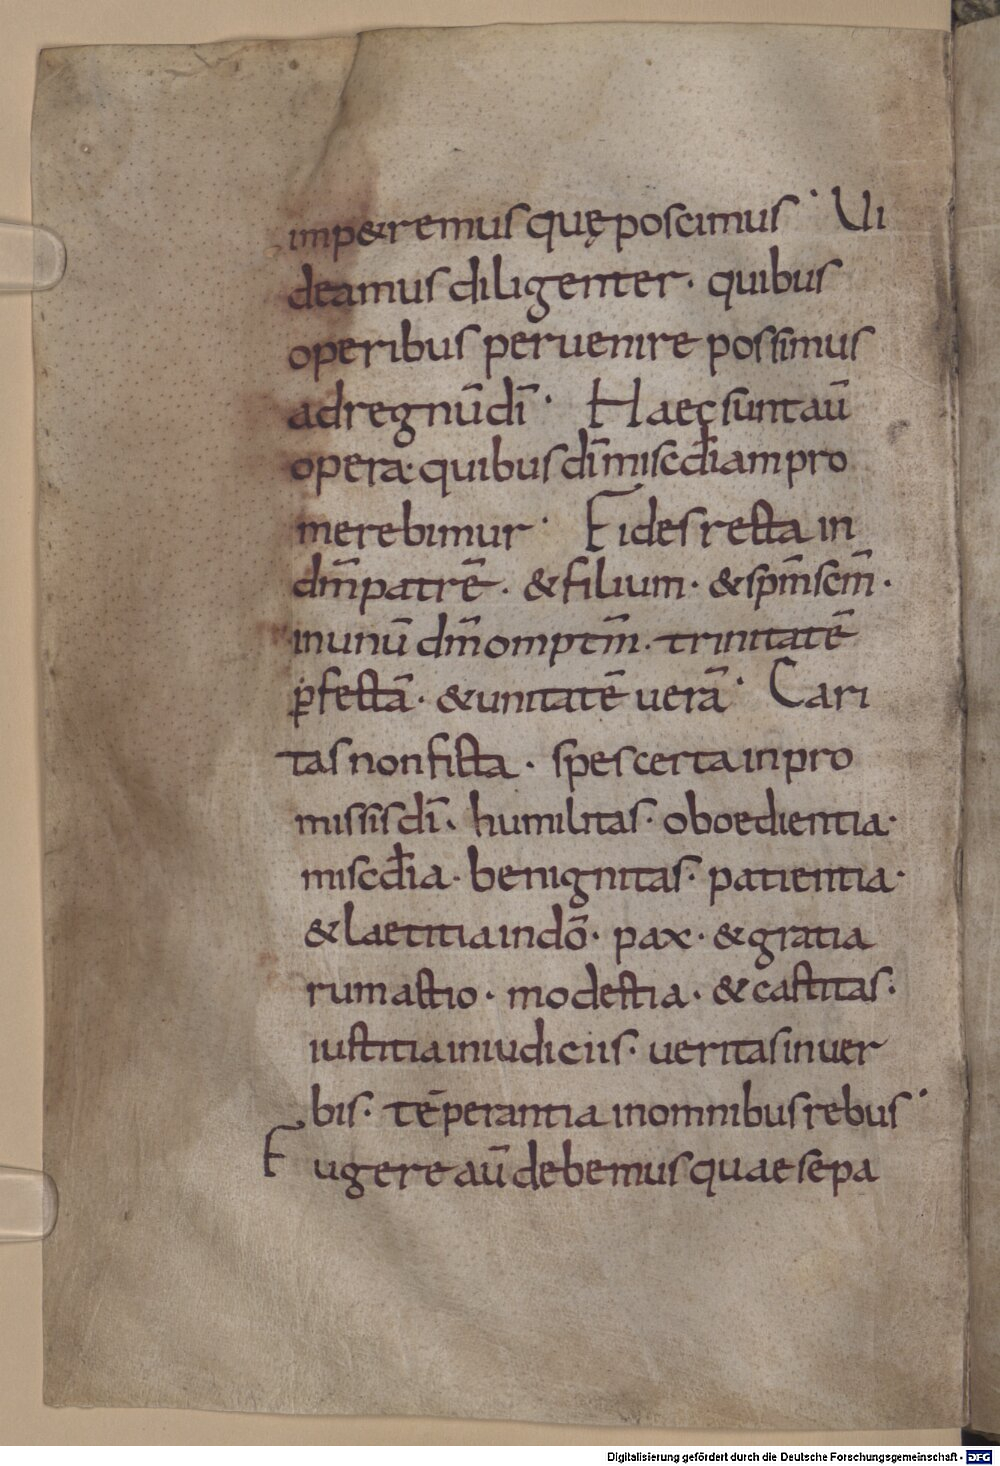 imp&remus quę poscimus · Ui
deamus diligenter · quibus
operibus peruenire possimus
ad regnū dī · Haec sunt aū
opera · quibus dī miscđiam pro
merebimur · Fides recta in
dm̄ patrē · & filium · & spm̄ scm̄ ·
in unū dm̄ omptm̄ · trinitatē
ꝑfectā · & unitatē uerā · Cari
tas non ficta · spes certa in pro
missis dī · humilitas · oboedientia ·
miscđia · benignitas · patientia ·
& laetitia in dō · pax · & gratia
rum actio · modestia · & castitas ·
iustitia in iudiciis · ueritas in uer
bis · tēperantia in omnibus rebus ·
Fugere aū debemus quae sepa
Digitalisierung gefördert durch die Deutsche Forschungsgemeinschaft - DFG